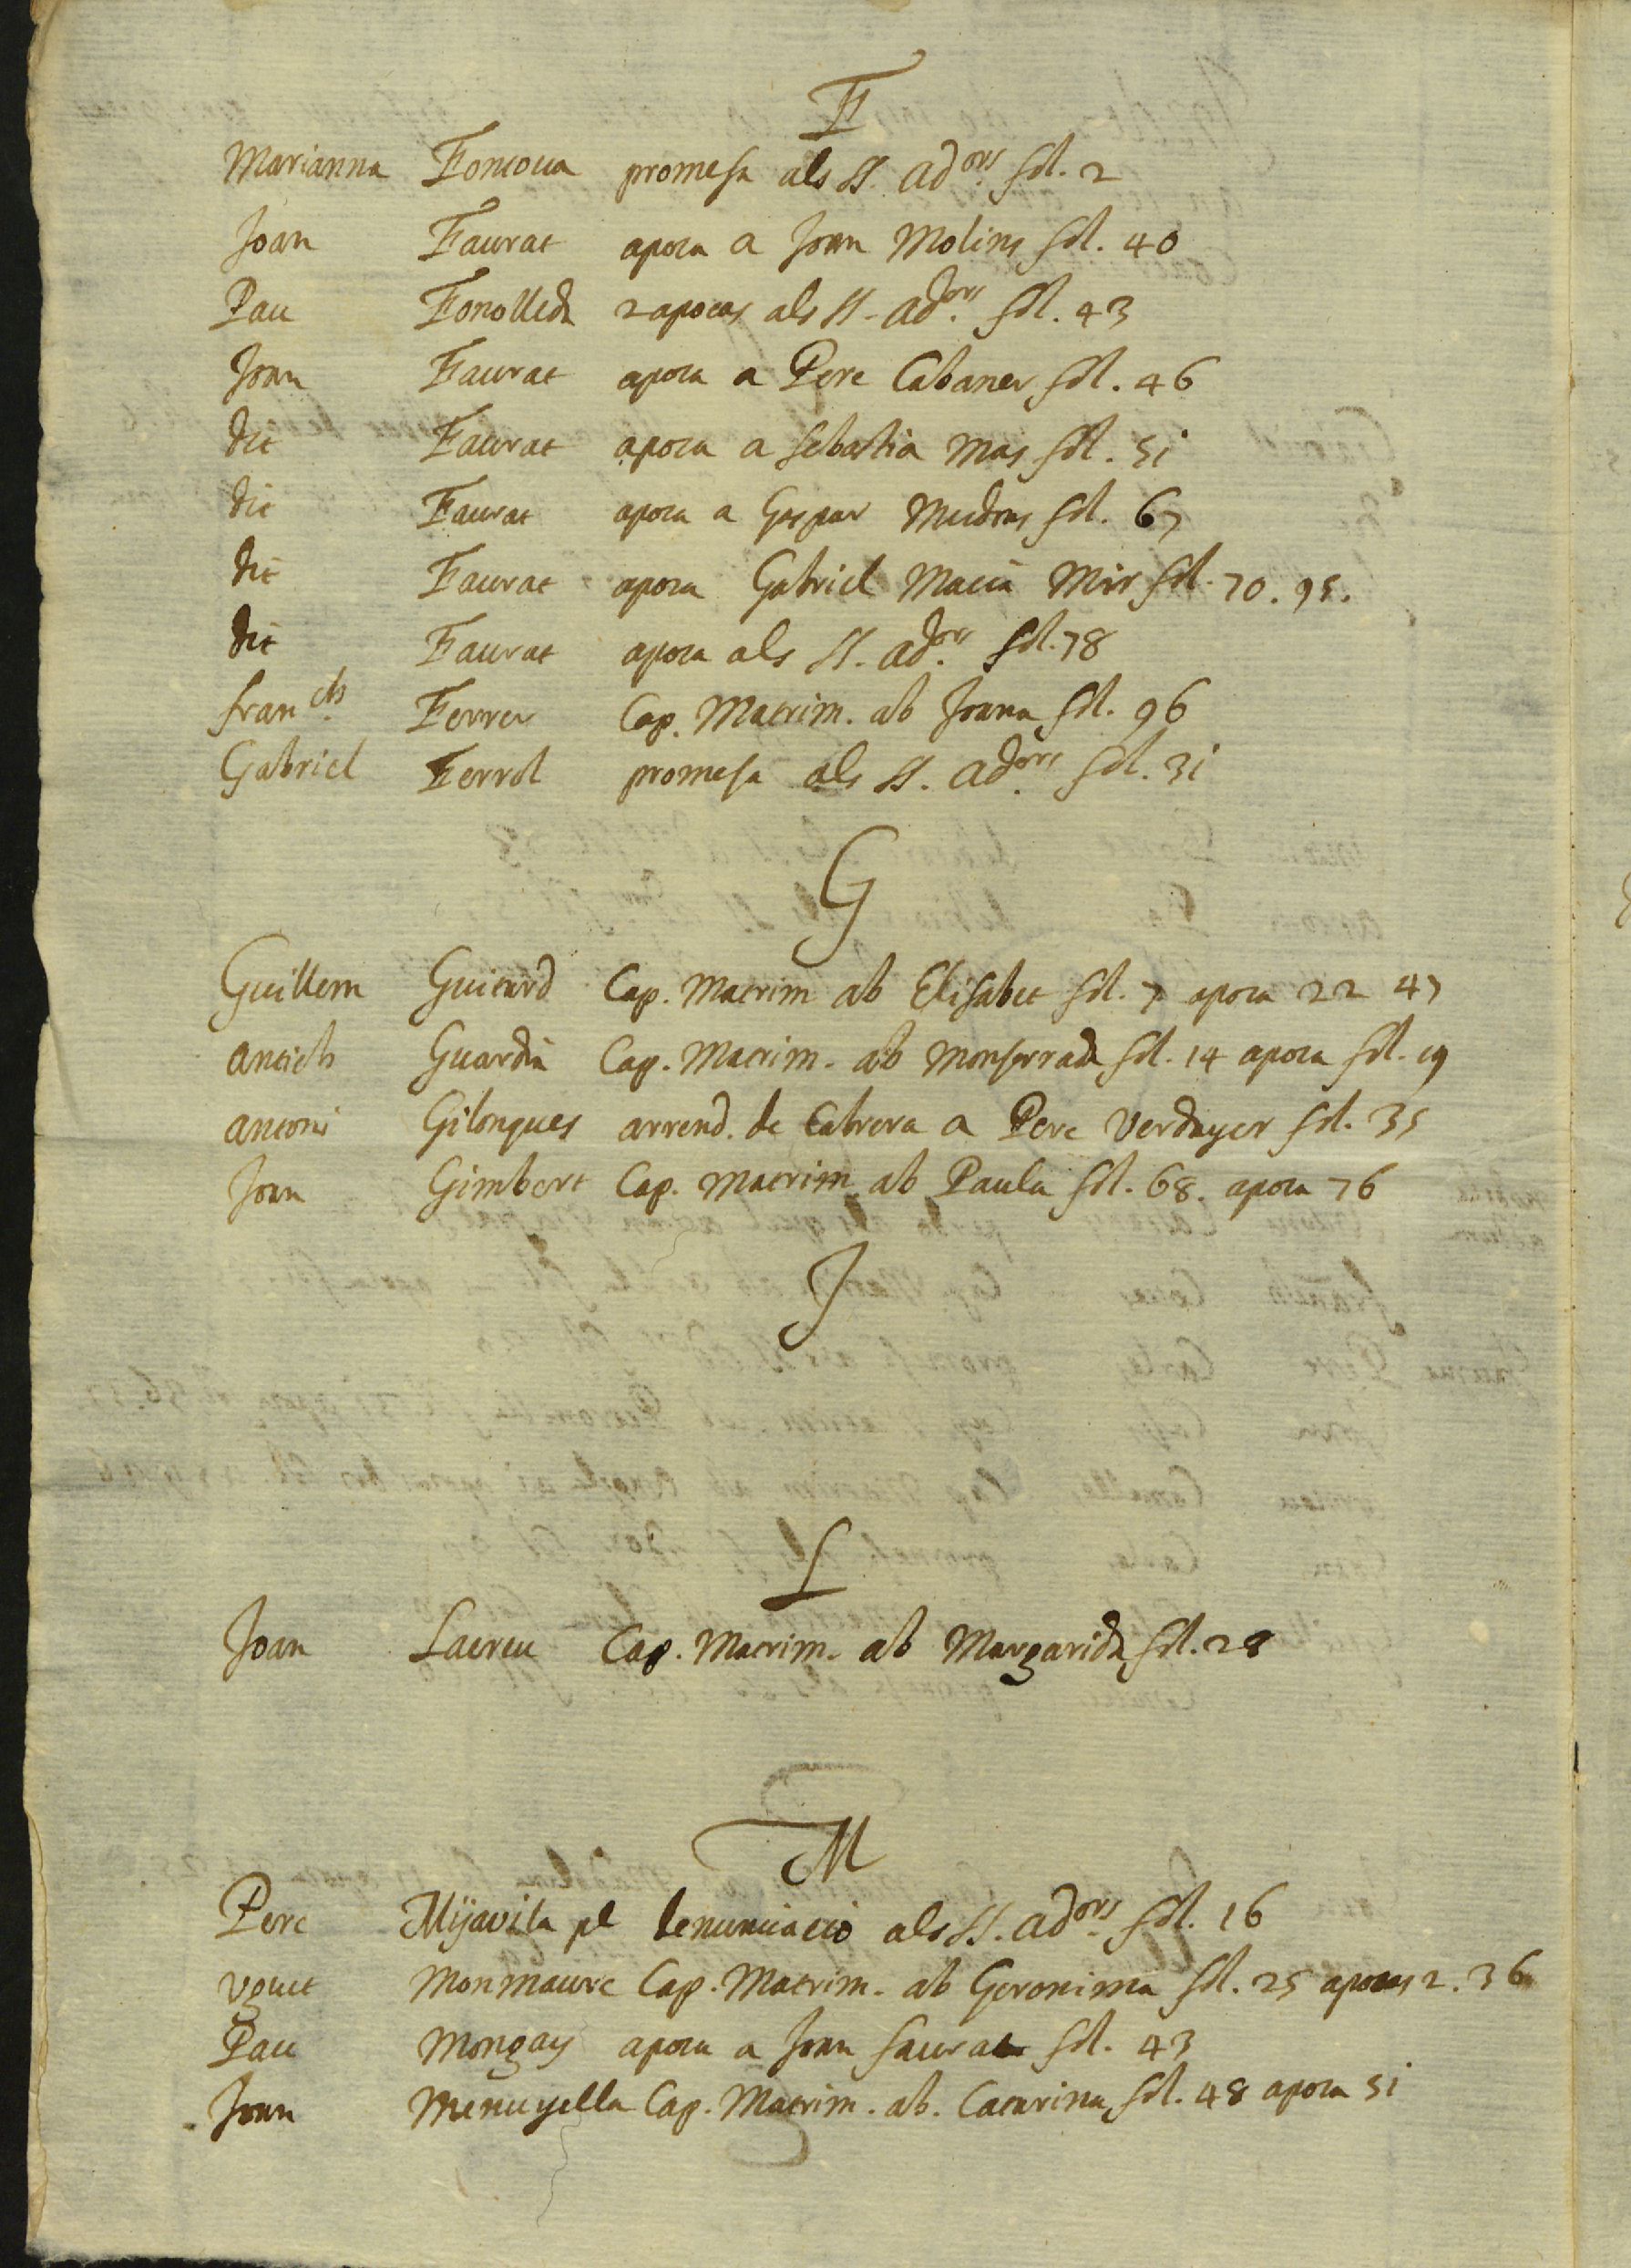 F
Marianna Foncoua promesa als SS. adors fol. 2
Joan Faurat apoca a Joan Molins fol. 40
Pau Fonolleda 2 apocas als SS. adors fol. 43
Joan Faurat apoca a Pere Cabaner fol. 46
dit Faurat apoca a Sebastia Mas fol. 51
dit Faurat apoca a Gaspar fol. 67
dit Faurat apoca Gabriel Macia Mir fol. 70. 95.
dit Faurat apoca als SS. adors fol. 78
franch Ferrer Cap. Matrim. ab Joana fol. 96
Gabriel Ferrol promesa als SS. adors fol. 31
G
Guillem Guitard Cap. Matrim ab Elisabet fol. 7 apoca 22 47
Antich Guardia Cap. Matrim. ab Monserrada fol. 14 apoca fol. 19
Antoni Gilonques arrend. de Cabrera a Pere Verdaguer fol. 35
Joan Gimbert Cap. Matrim ab Paula fol. 68. apoca 76
J
L
Joan Lacreu Cap. Matrim. ab Margarida fol. 28
M
Pere Mijavila denunciacio als SS. adors fol. 16
Vguet Monmaure Cap. Matrim. ab Geronima fol. 25 apocas 2. 36
Pau Mongay apoca a Joan faurat fol. 43
Joan Menuyella Cap. Matrim. ab. Catarina fol. 48 apoca 51